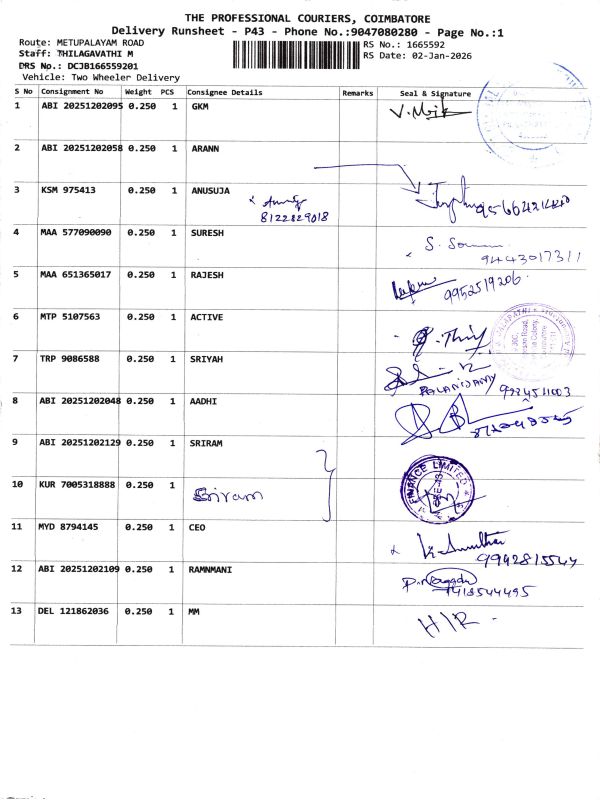 THE PROFESSIONAL COURIERS, COIMBATORE
Delivery Runsheet - P43 - Phone No.:9047080280 - Page No.:1
Route: METUPALAYAM ROAD
Staff: THILAGAVATHI M
DRS No.: DCJB166559201
Vehicle: Two Wheeler Delivery
RS No.: 1665592
RS Date: 02-Jan-2026
S No Consignment No Weight PCS Consignee Details Remarks Seal & Signature
1 ABI 20251202095 0.250 1 GKM
2 ABI 20251202058 0.250 1 ARANN
3 KSM 975413 0.250 1 ANUSUJA
8122829018
4 MAA 577090090 0.250 1 SURESH
9443017311
5 MAA 651365017 0.250 1 RAJESH
9952519206
6 MTP 5107563 0.250 1 ACTIVE
7 TRP 9086588 0.250 1 SRIYAH
PALANISAMY 9924511003
8 ABI 20251202048 0.250 1 AADHI
9 ABI 20251202129 0.250 1 SRIRAM
FINANCE LIMITED
10 KUR 7005318888 0.250 1
Sriram
11 MYD 8794145 0.250 1 CEO
9942815544
12 ABI 20251202109 0.250 1 RAMNMANI
13 DEL 121862036 0.250 1 MM
HIR